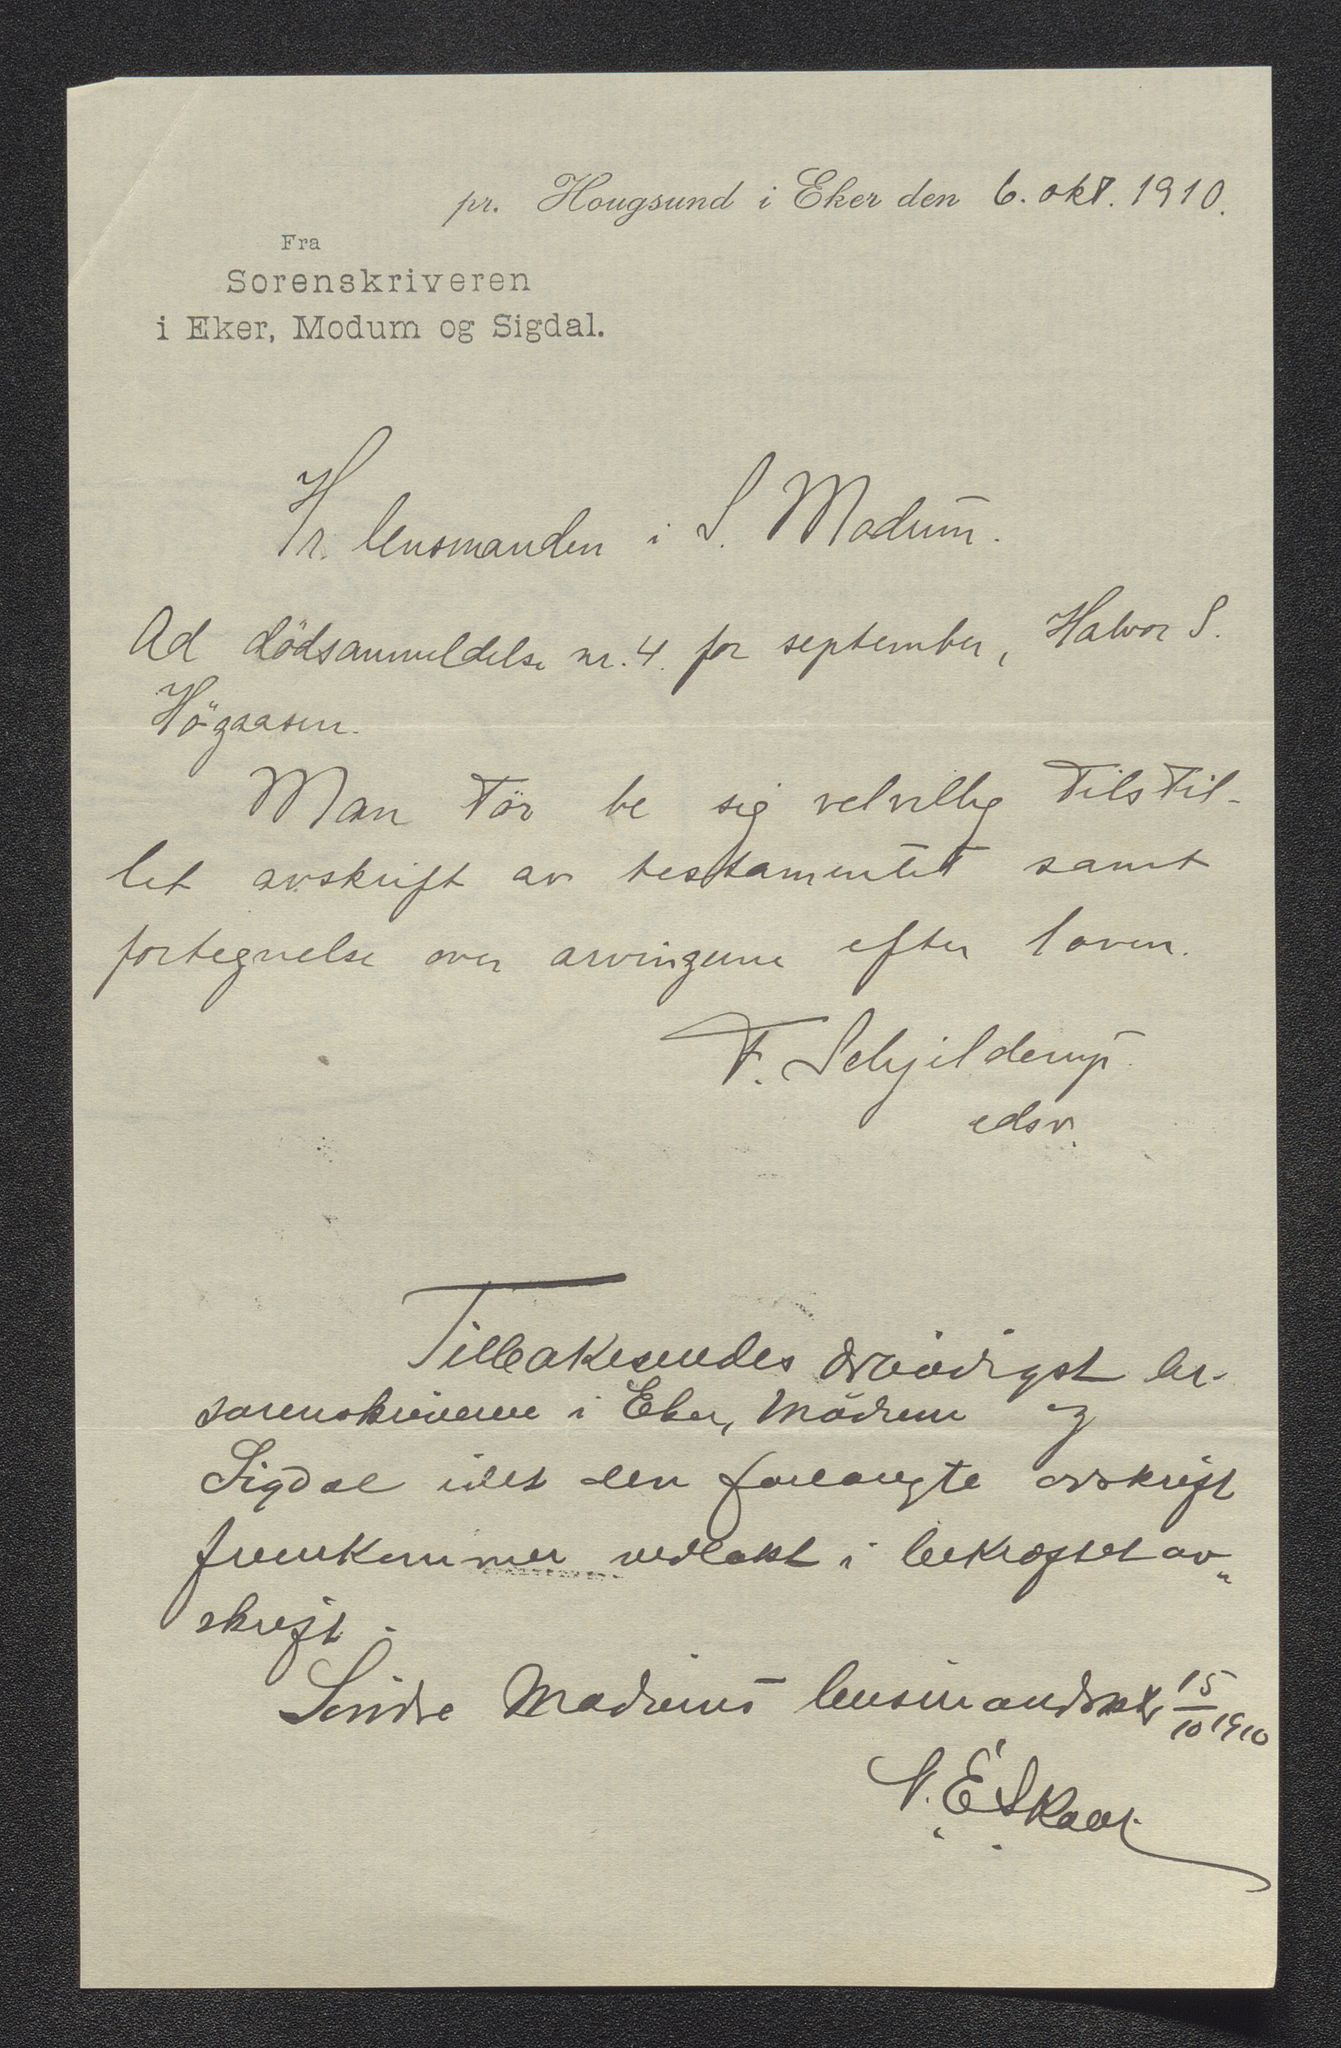 pr. Hougsund i Eker den 6. okt. 1910.
Fra
Sorenskriveren
i Eker, Modum og Sigdal.
Hr. lensmanden i S. Modum.
Ad dödsanmeldelse nr. 4. for september, Halvor S.
Högaasen.
Man tör be sig velvillig tilstil-
let avskrift av testamentet samt
fortegnelse over arvingerne efter loven.
F. Schjelderup
edsv.
Tilbakesendes ærbödigst hr.
sorenskriveren i Eker, Modum og
Sigdal idet den forlangte avskrift
fremkommer vedlakt i bekræftet av„
skrift.
Söndre Modums lensmandskt 15/10 1910
N. E. Skaar